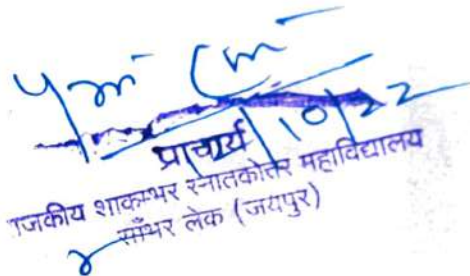 प्राचार्य
/10/22
राजकीय शाकम्भर स्नातकोत्तर महाविद्यालय
साँभर लेक (जयपुर)